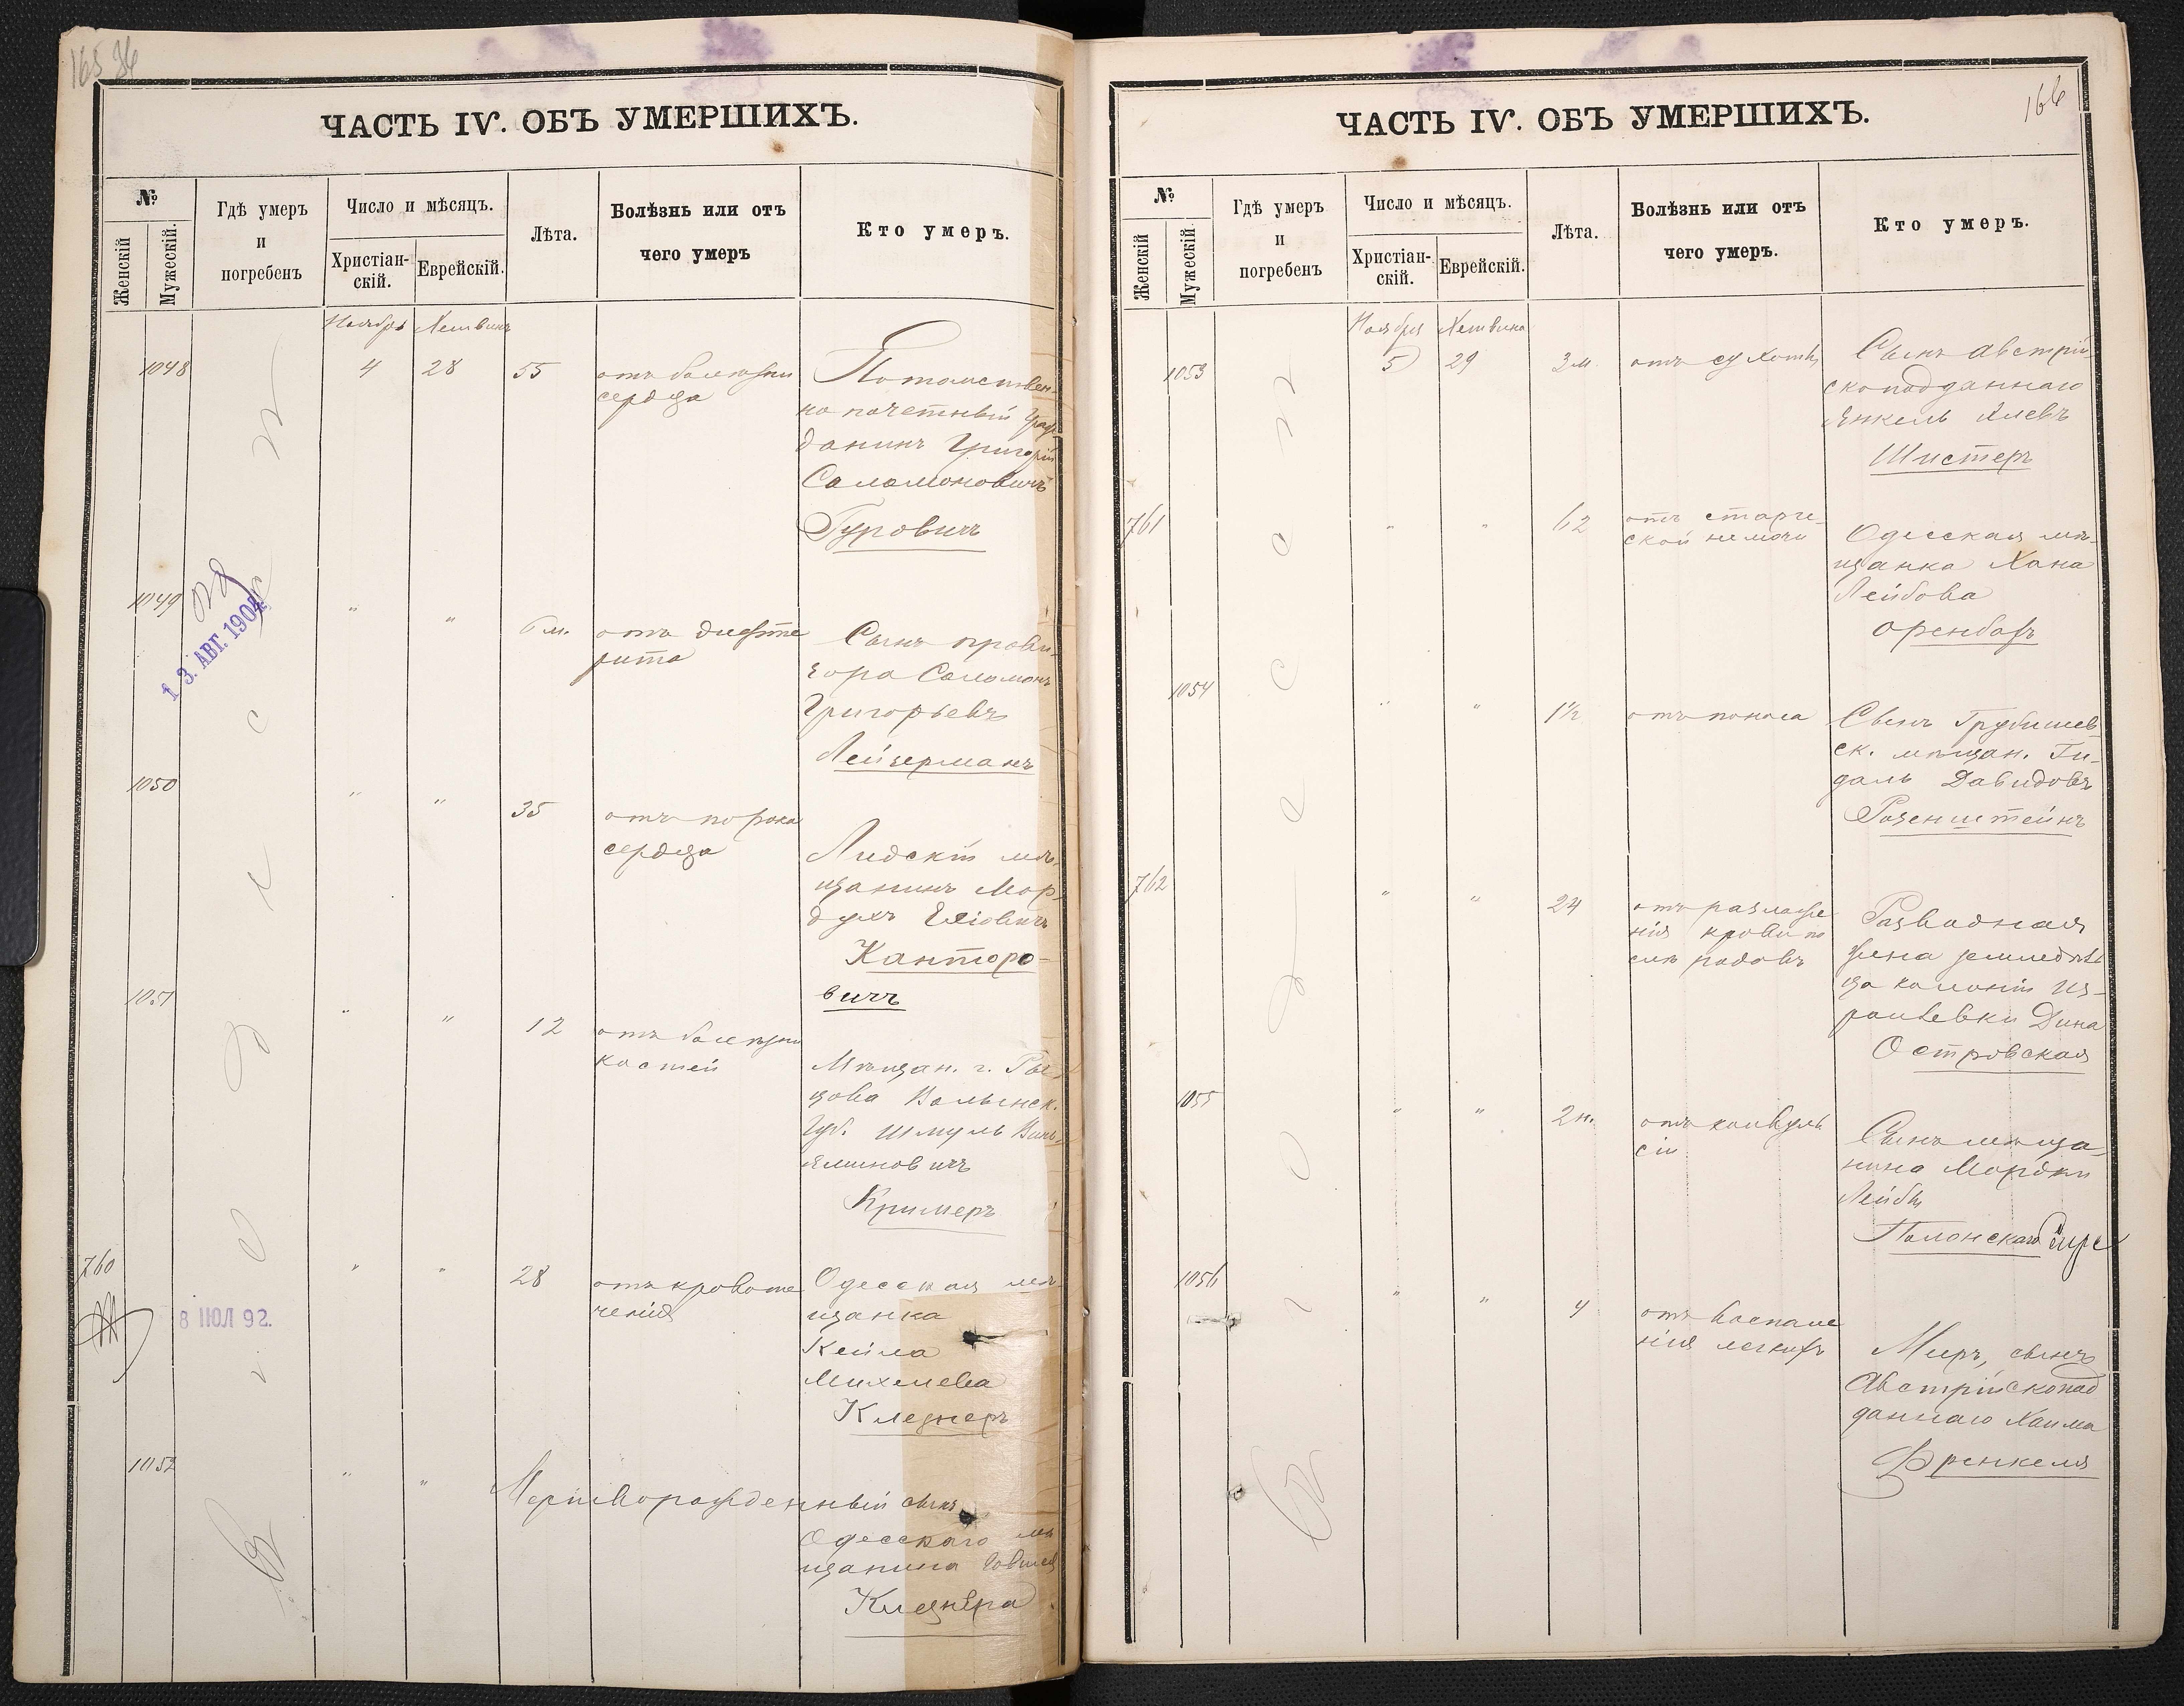 165 36
ЧАСТЬ IV. ОБЪ УМЕРШИХЪ.
№
Женскій
Мужескій.
Гдѣ умеръ
и
погребенъ
Число и мѣсяцъ.
Христіан-
скій.
Еврейскій.
Лѣта.
Болѣзнь или отъ
чего умеръ
Кто умеръ.
въ г. Одессѣ
Ноябрь Хешвинъ
1048 4 28 55
отъ болезни
сердца
Потомствен-
но почетный Граж
данинъ Григорій
Саломоновичъ
Гуровичъ
1049 " " 6 м.
отъ дифте
рита
Сынъ прови-
зора Саломонъ
Григорьевъ
Лейзерманъ
13. АВГ. 1904
1050 " " 35
отъ порока
сердца
Лидскій мѣ-
щанинъ Мор-
духъ
Канторо-
вичъ
1051 " " 12
отъ болезни
костей
Мѣщан. г.
Волынск.
Губ. Шмуль Вень-
яминовичъ
Кримеръ
760 " " 28
отъ кровоте
ченія
Одесская мѣ-
щанка
Кейла
Михелева
Клезнеръ
8 ІЮЛ 92.
1052 " "
Мертворожденный сынъ
Одесскаго мѣ
щанина
Клезнера
166
ЧАСТЬ IV. ОБЪ УМЕРШИХЪ.
№
Женскій
Мужескій.
Гдѣ умеръ
и
погребенъ
Число и мѣсяцъ.
Христіан-
скій.
Еврейскій.
Лѣта.
Болѣзнь или отъ
чего умеръ.
Кто умеръ.
въ г. Одессѣ
Ноября Хешвина
1053 5 29 3 м.
отъ сухотки
Сынъ австрій-
скоподданнаго
Янкель
Шистеръ
761 " " 62
отъ старче-
ской немочи
Одесская мѣ-
щанка Хана
Лейбова
Оренбахъ
1054 " " 1½
отъ поноса
Сынъ Грубишев
ск. мѣщан. Ги-
даль Давидовъ
Розенштейнъ
762 " " 24
отъ разложе
нія крови по
слѣ родовъ
Разводная
жена земледѣль
ца колоніи Из-
раилевки Дина
Островская
1055 " " 2 н.
отъ конвуль
сій
Сынъ мѣща-
нина Мордки
Лейбы
Полонскаго
1056 " " 4
отъ воспале
нія легкихъ
Меръ, сынъ
Австрійскопод
даннаго Хаима
Френкеля